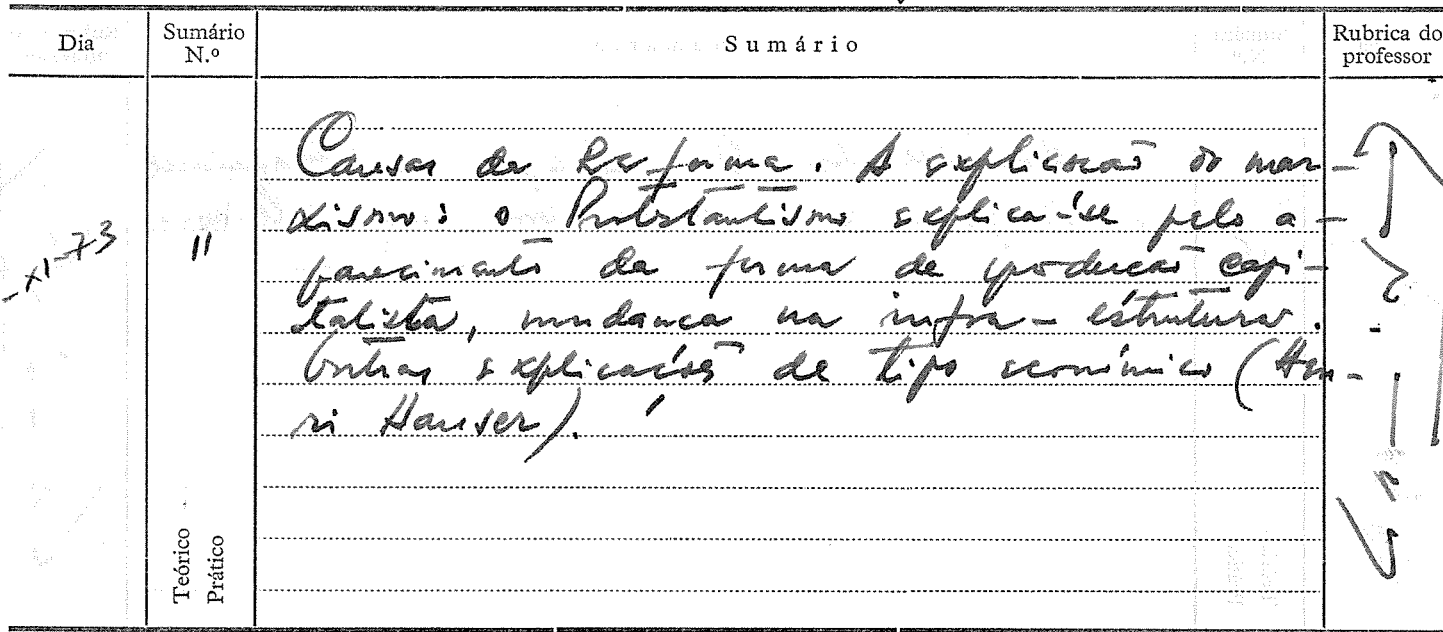 Dia
Sumário
N.º
Sumário
Rubrica do
professor
-XI-73
11
Causas da Reforma. A explicação do mar-
xismo: o Protestantismo explica-se pelo a-
parecimento da forma de produção capi-
talista, mudança na infra-estrutura.
Outras explicações de tipo económico (Hen-
ri Hauser).
Teórico
Prático